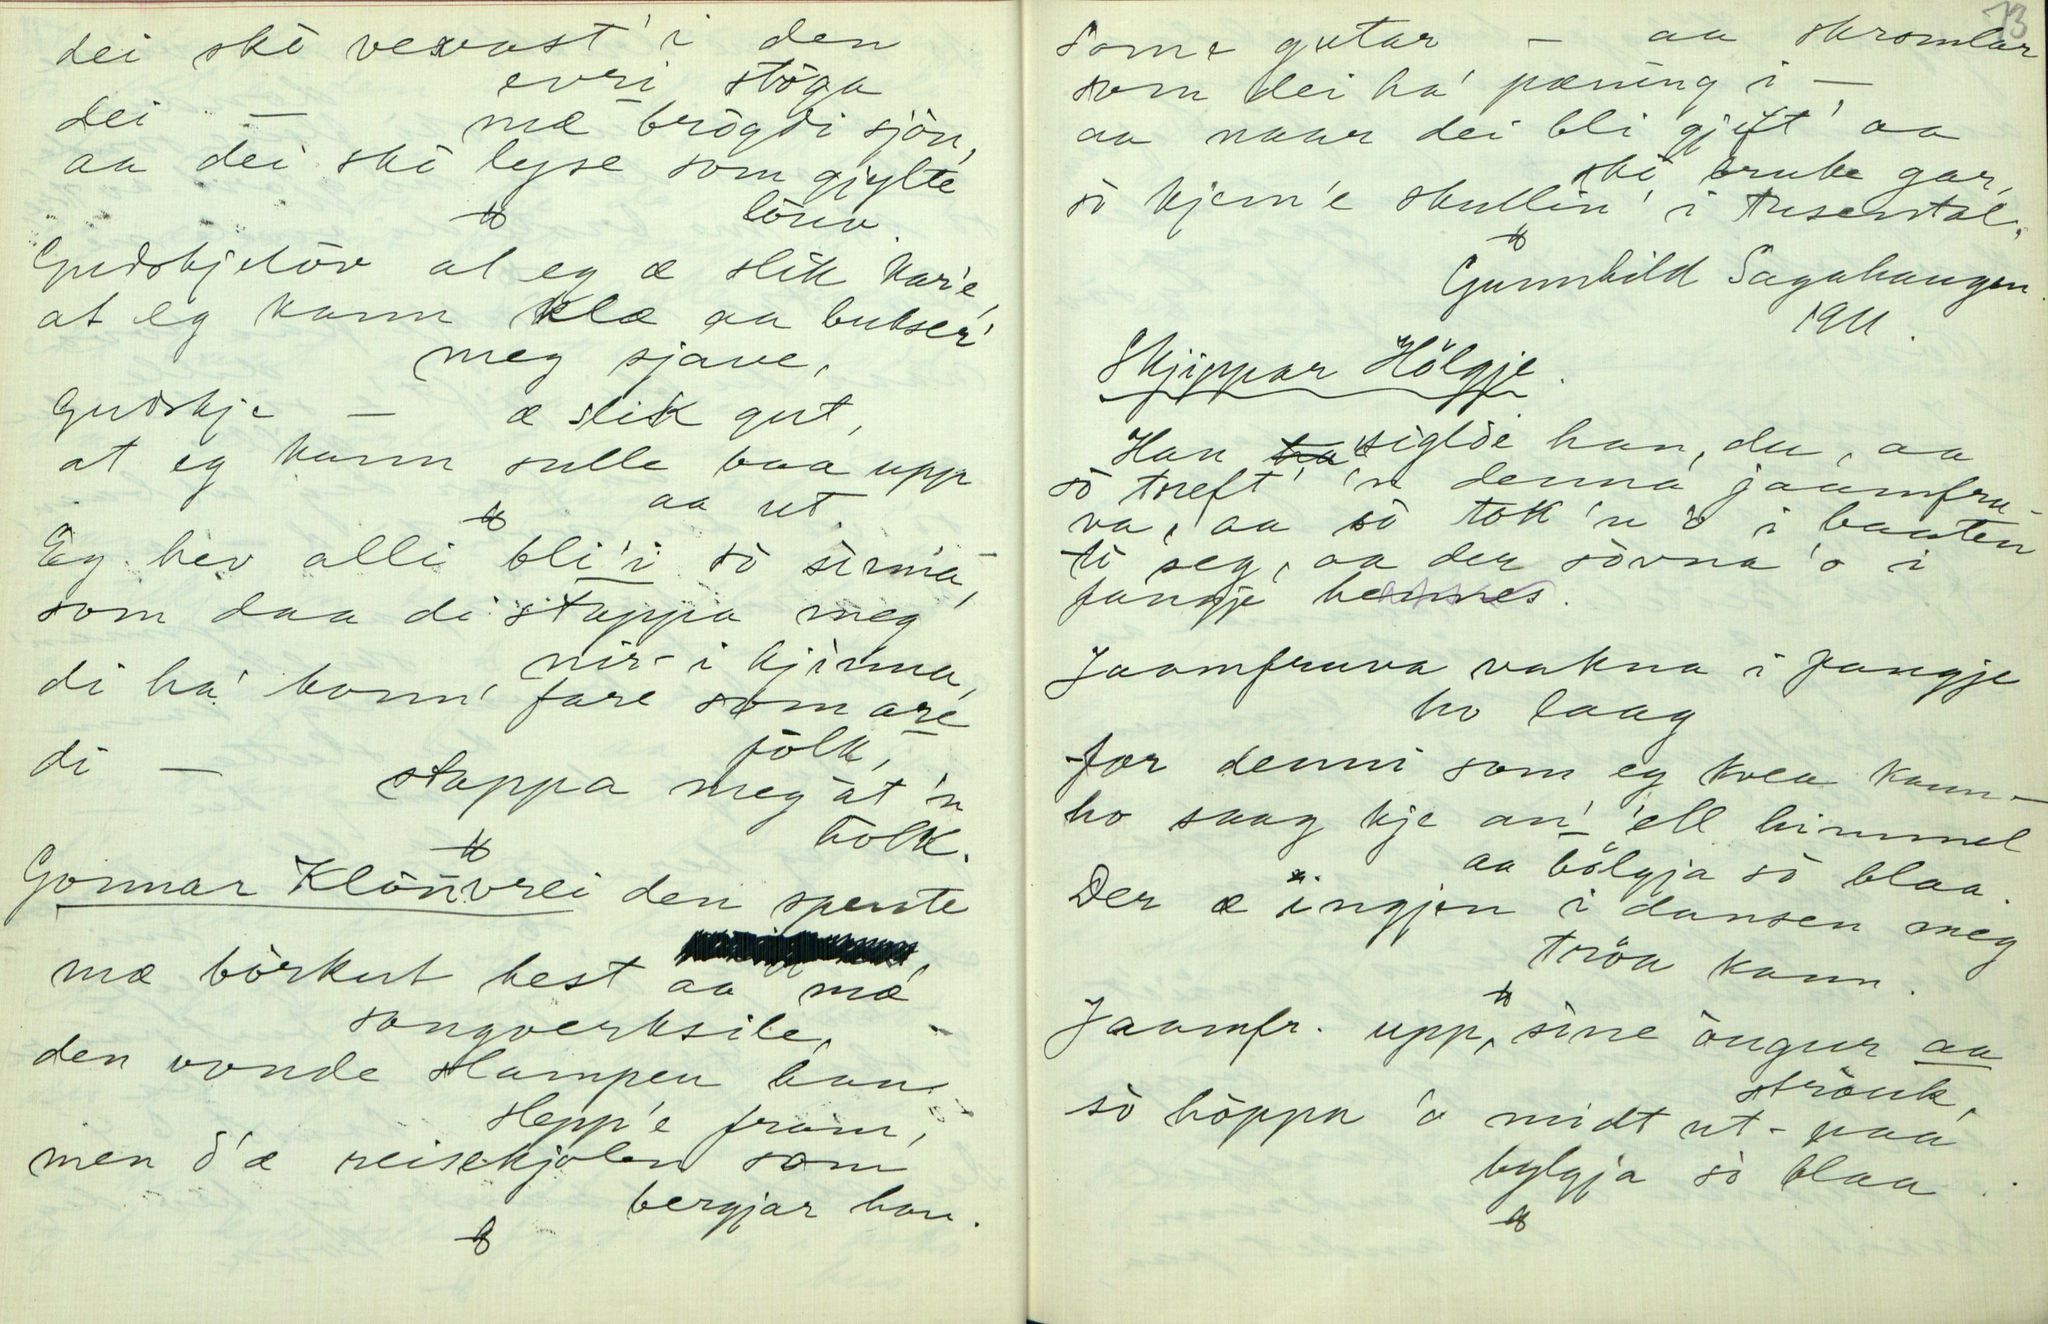 dei skò vexast' i den
evri stöga
dei — mæ brögdi sjön,
aa dei skò lyse som gjylte
löuv.
Gudskjelöv at eg æ slik kar'e,
at eg kann klæ aa bukser'
meg sjave,
Gudskje — æ slik gut,
at eg kann sulle baa upp
aa ut.
Eg hev alli bli'i sò sirma,
som daa di stappa meg
nir- i kjinna,
di ha' konn' fare som are
fölk,
di — stappa meg at 'n
hölk.
Gonnar Klönvrei den spente
mæ börkut hest aa mæ
songverksile,
den vonde slampen han
slepp'e fram,
men d'æ reisekjolen som
bergjar han.
73
Some gutar — aa skromlar
som dei ha' pæning i —
aa naar dei bli gjift' aa
skò bruke gar,
sò kjem'e skullin' i tusental.
Gunnhild Sagahaugen
1911.
Skjippar Hölgje.
Han siglde han, du, aa
sò treft' 'n denna jaamfru-
va, aa sò tok 'n 'o i baaten
ti seg, aa der sòvna 'o i
fangje hennes.
Jaamfruva vakna i fangje
ho laag
for denni som eg kvea kann —
ho saag kje an' 'ell himmel
aa bölgja sò blaa.
Der æ ingjen i dansen meg
tröa kann.
Jaamfr. upp, sine öugur aa
ströuk,
sò höppa 'o midt ut- paa
bylgja sò blaa.